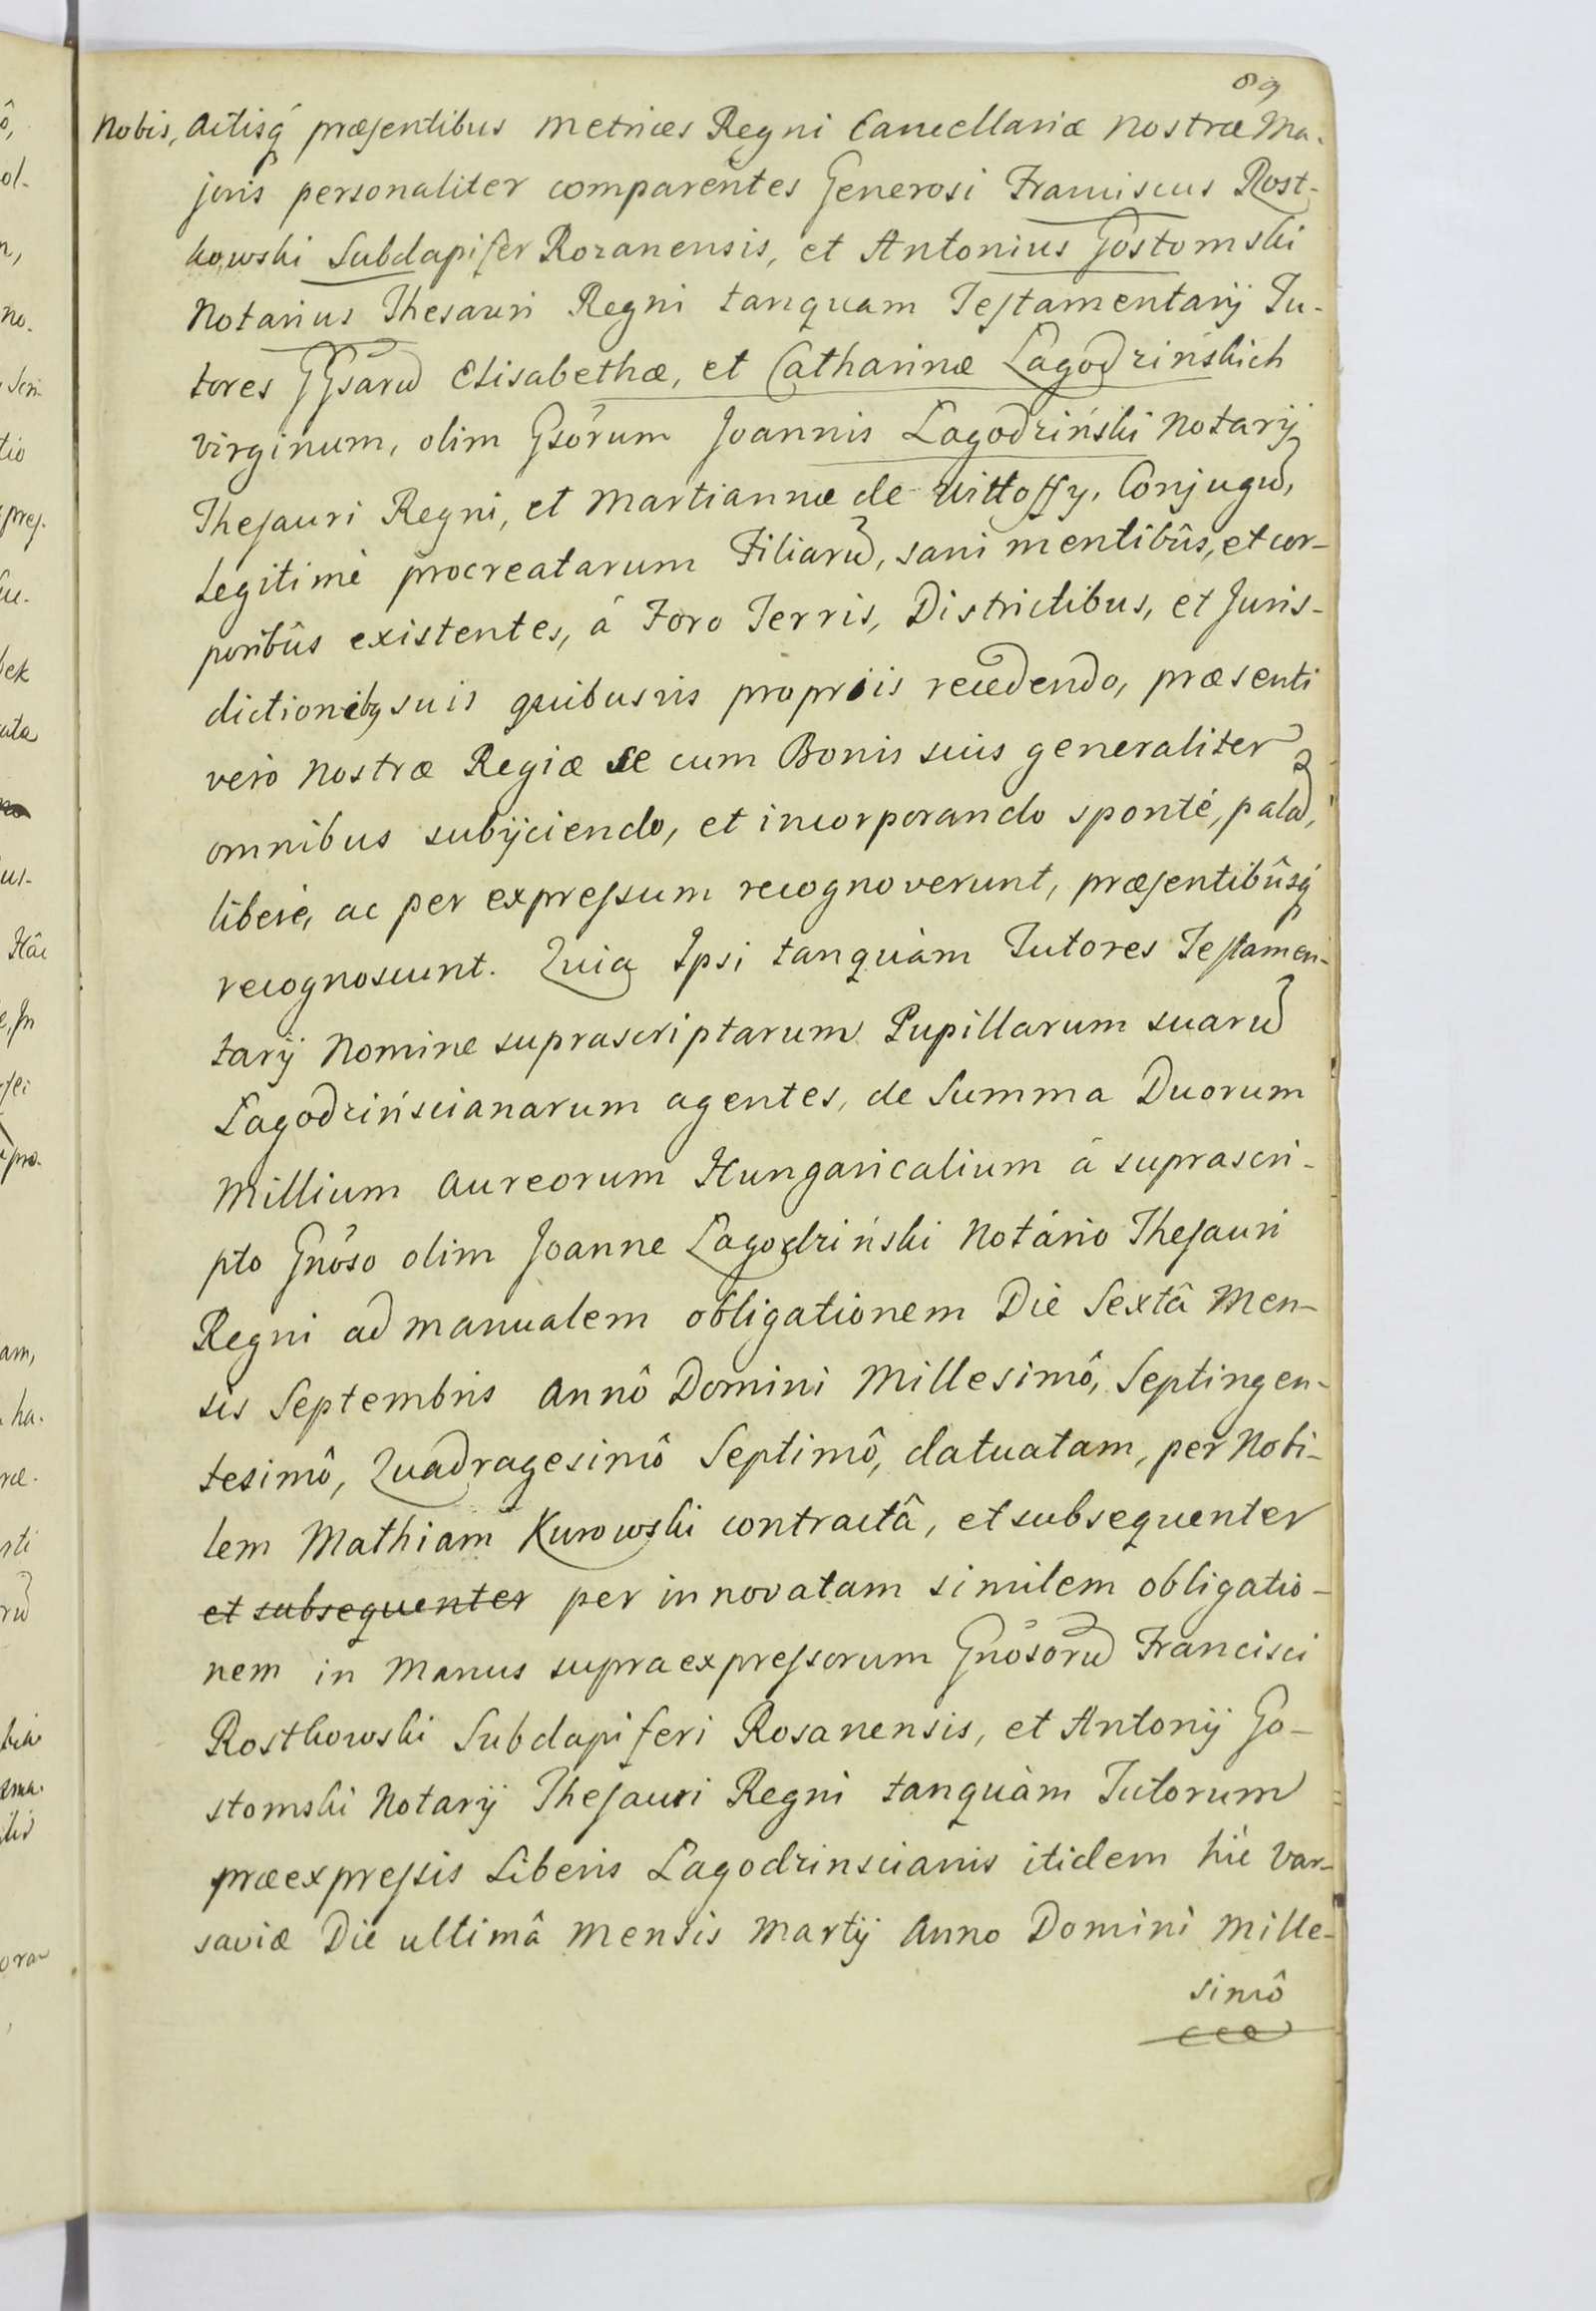 89
Nobis, Actisq́ præsentibus Metrices Regni Cancellariæ Nostræ Ma-
joris personaliter comparentes Generosi Franciscus Rost-
kowski Subdapifer Rozanensis, et Antonius Gostomski
Notarius Thesauri Regni tanquam Testamentarij Tu-
tores GGsarũ Elisabethæ, et Catharinæ Lagodzińskich
virginum, olim Gsõrum Joannis Lagodziński Notarij
Thesauri Regni, et Martiannæ de Wittoffy, Conjugũ,
Legitimè procreatarum Filiarũ, sani mentibûs, et cor-
poribûs existentes, á Foro Terris, Districtibus, et Juris-
dictionibq suis quibusvis propriis recedendo, præsenti
verò Nostræ Regiæ se cum Bonis suis generaliter
omnibus subijciendo, et incorporando sponté, palã,
liberè, ac per expressum recognoverunt, præsentibûsq́
recognoscunt. Quia Ipsi tanquàm Tutores Testamen-
tarij Nomine suprascriptarum Pupillarum suarũ
Lagodzińscianarum agentes, de Summa Duorum
Millium Aureorum Hungaricalium á suprascri-
pto Gnõso olim Joanne Lagodziński Notário Thesauri
Regni ad manualem obligationem Die Sextâ Men-
sis Septembris Annô Domini Millesimô, Septingen-
tesimô, Quadragesimô Septimô, datuatam, per Nobi-
lem Mathiam Kurowski contractâ, et subsequenter
et subsequenter per innovatam similem obligatio-
nem in Manus supraexpressorum Gnõsorũ Francisci
Rostkowski Subdapiferi Rosanensis, et Antonij Go-
stomski Notarij Thesauri Regni tanquàm Tutorum
præexpressis Liberis Lagodzinscianis itidem hìc Var-
saviæ Die ultimâ Mensis Martij Anno Domini Mille-
simô